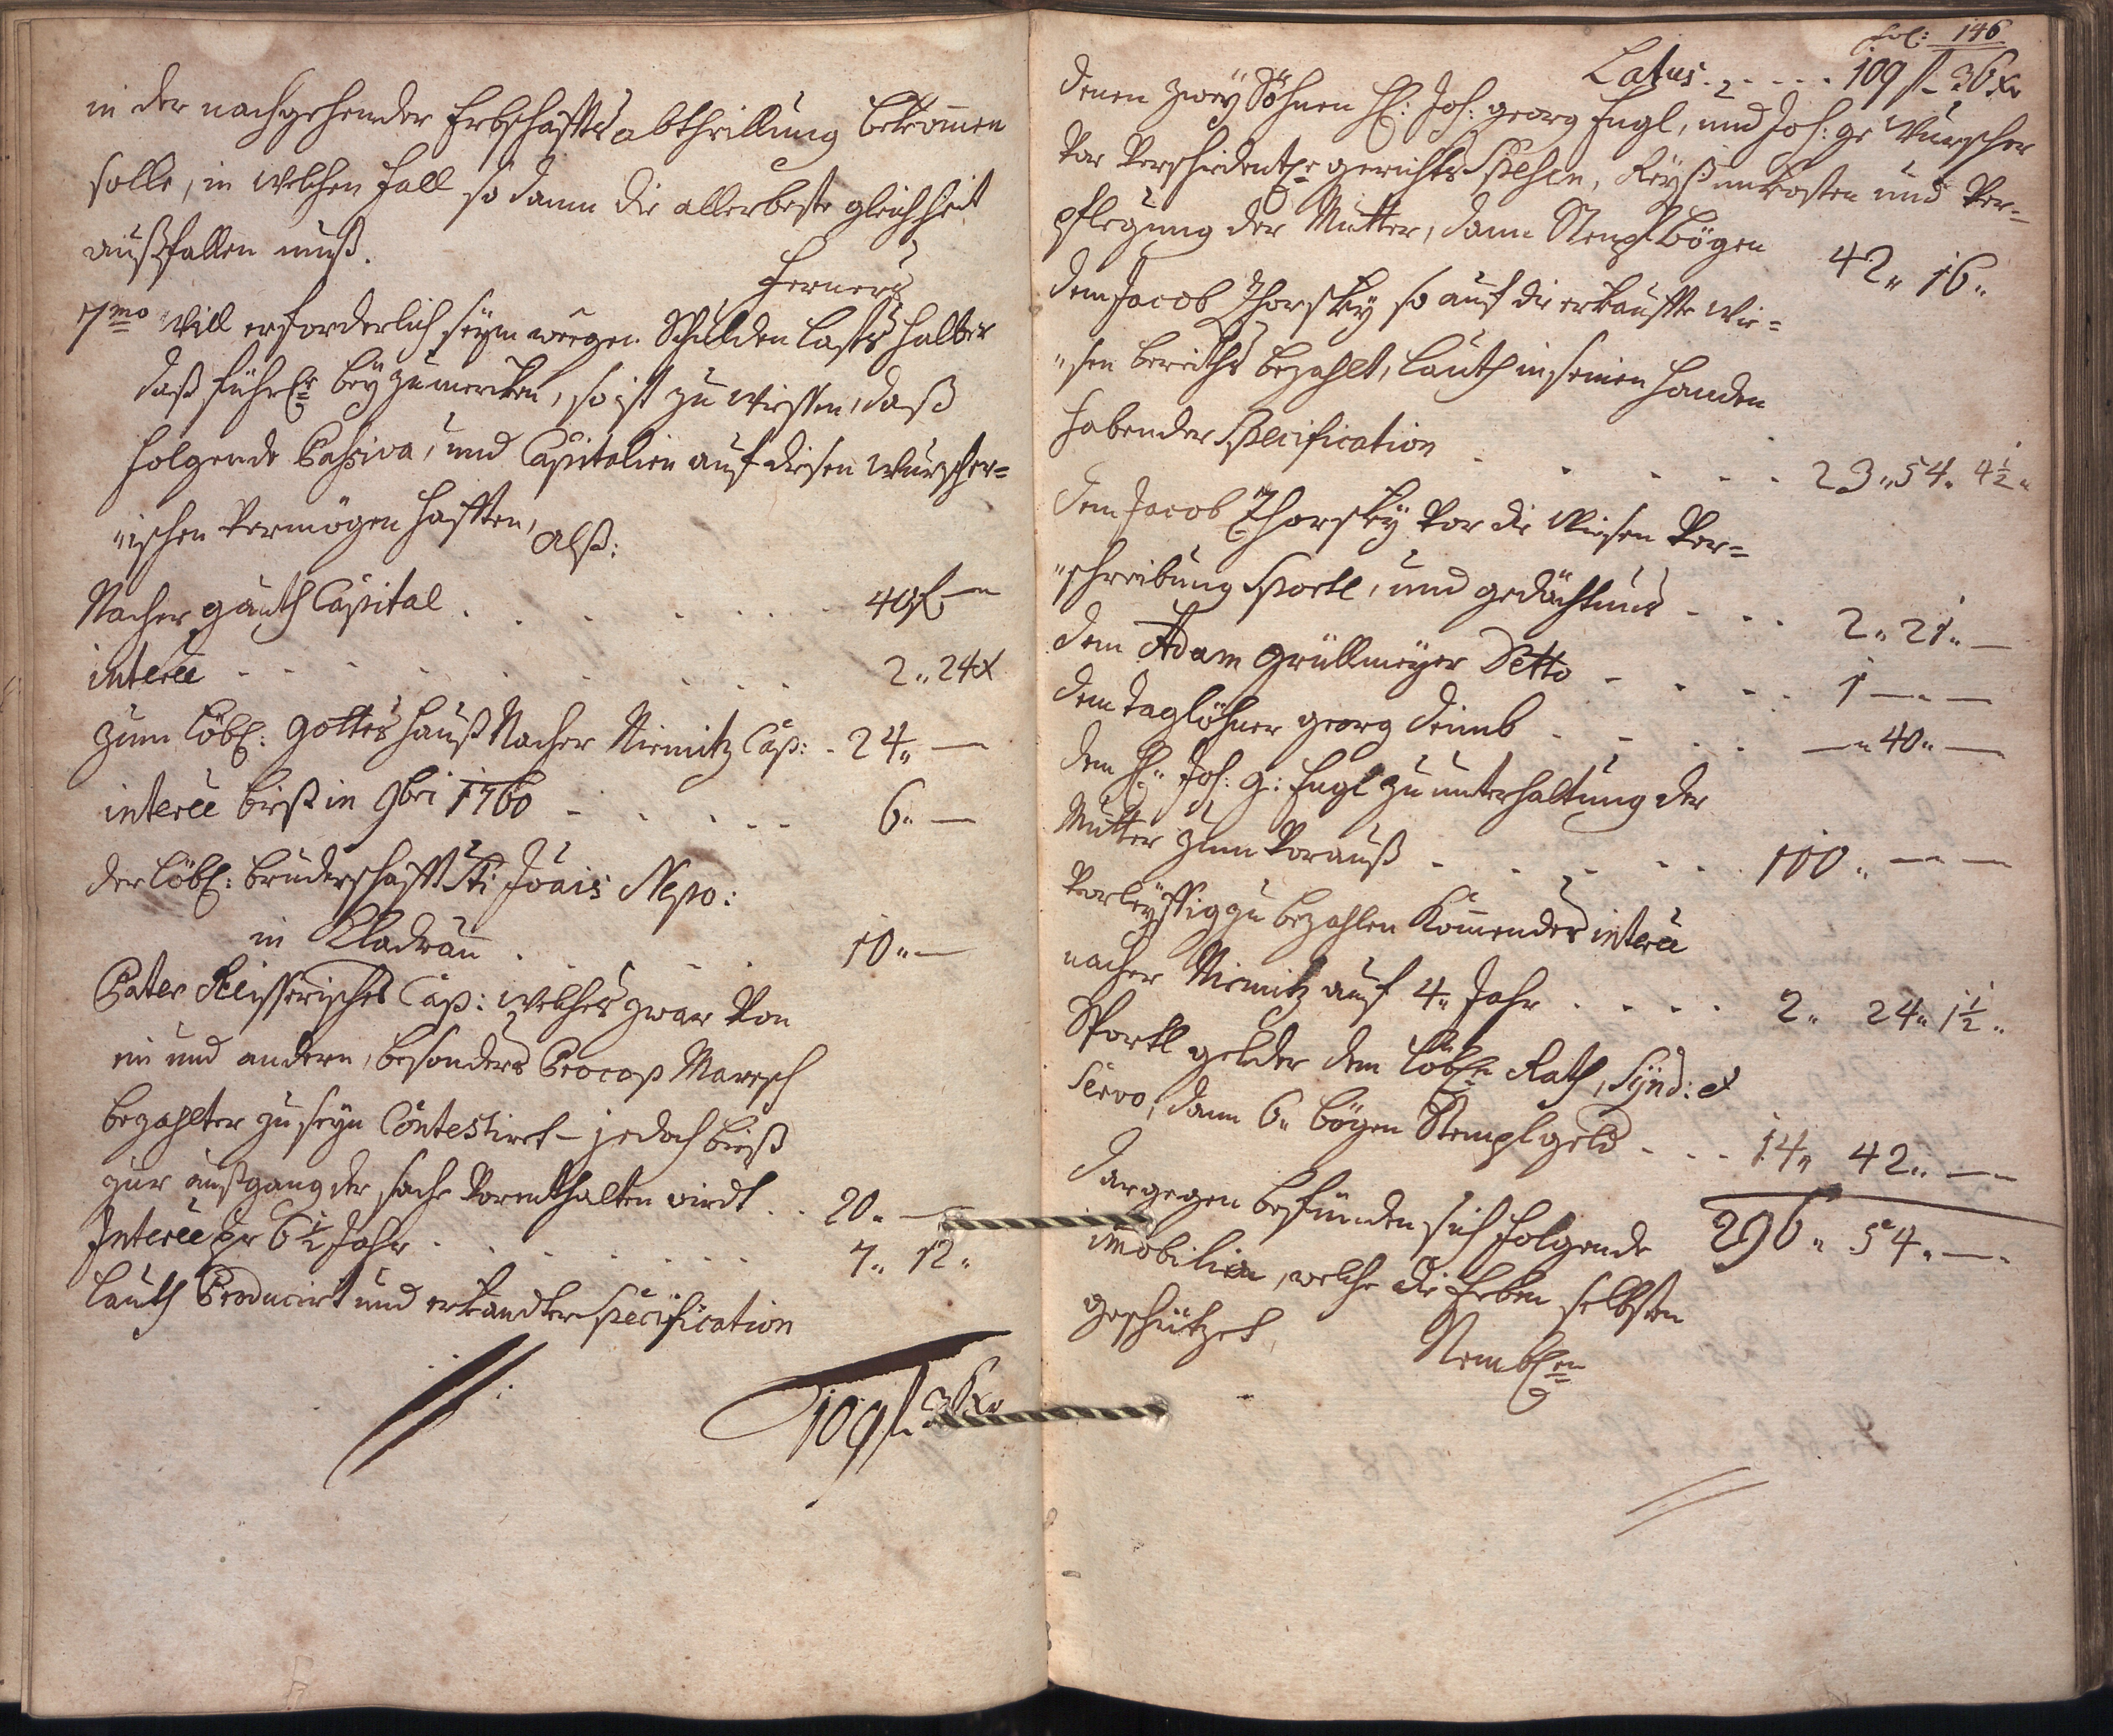 in der nachgehender Erbschaffts abtheillung bekommen
solle, in welchen fall so dann die allerbeste gleichheit
außfallen muß.
Ferners
7mo Will erforderlich seyn wegen Schulden Lasts halber
daß bey zu mercken, so ist zu wissen, daß
folgende Passiva, und Capitalien auf diesen Wurscher=
"ischen Vermögen hafften, Alß:
Nacher gauth Capital . . . . . . 40 f —
interee . . . . . . . 2 „ 24 x
zum löbl: gottes hauß Nacher Niemitz Cap: . 24 „ —
interee biß in 9bri 1760 . . . . . 6 „ —
der löbl: bruderschafft Sti Joais Nepo:
in Kladrau . . . . . 10 „ —
Pater Reisserisches Cap: welches zwar von
ein und andern, besonders Procop Maresch
bezahlter zu seyn Contestiret — jedoch bieß
zur außgang der sache vorenthalten wirdt . . 20 „ —
Interee pr 6 1/2 Jahr . . . . . . 7 „ 12 „
lauth Producirt und erkandter specification
109 f 36 xr
fol: 146
Latus . . . . . 109 f 36 xr
denen zwey Söhnen H: Joh: georg Engl, und Joh: ge Wurscher
vor gerichts Spesen, Reyß unkosten und Ver=
pflegung der Mutter, dann Stempf bögen 42 „ 16 „
dem Jacob Thorsky so auf die erkauffte Wie=
"sen bereiths bezahlt, lauth in seinen Handen
habender Specification . . . . . 23 „ 54 „ 4 1/2 „
dem Jacob Thorsky vor die Wiesen Ver=
"schreibung Sportl, und gedächtnus . . . 2 „ 21 „ —
dem Adam Grüllmeyer Detto . . . . 1 — „ —
dem taglöhner georg Deimb . . . . — „ 40 „ —
dem H: Joh: g: Engl zu unterhaltung der
Mutter zum Vorauß . . . . . . 100 „ — „ —
Vorleyffig zu bezahlen Kommendes interee
nacher Niemitz auf 4 „ Jahr . . . . 2 „ 24 „ 1 1/2 „
Sportl gelder dem löbl Rath, Synd: et
Servo, dann 6 „ bögen Stempl geld . . . 14 „ 42 „ —
296 „ 54 „ — „
dargegen befünden sich folgende
imobilien, welche die Erben selbsten
geschätzet,
Nembl